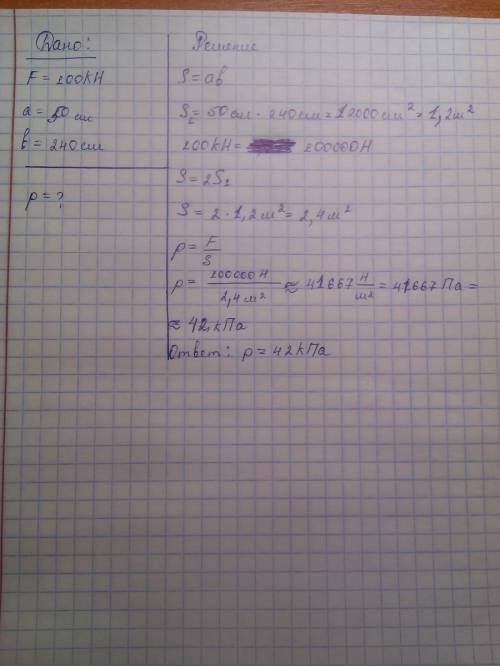 Дано:
F = 100кН
a = 50 см
b = 240 см
p = ?
Решение
S = ab
S₁ = 50см · 240см = 12000см² = 1,2м²
100кН = 100000Н
S = 2S₁
S = 2 · 1,2м² = 2,4м²
p = F/S
p = 100000Н/2,4м² ≈ 41667 Н/м² = 41667 Па =
≈ 42кПа
Ответ: p = 42кПа